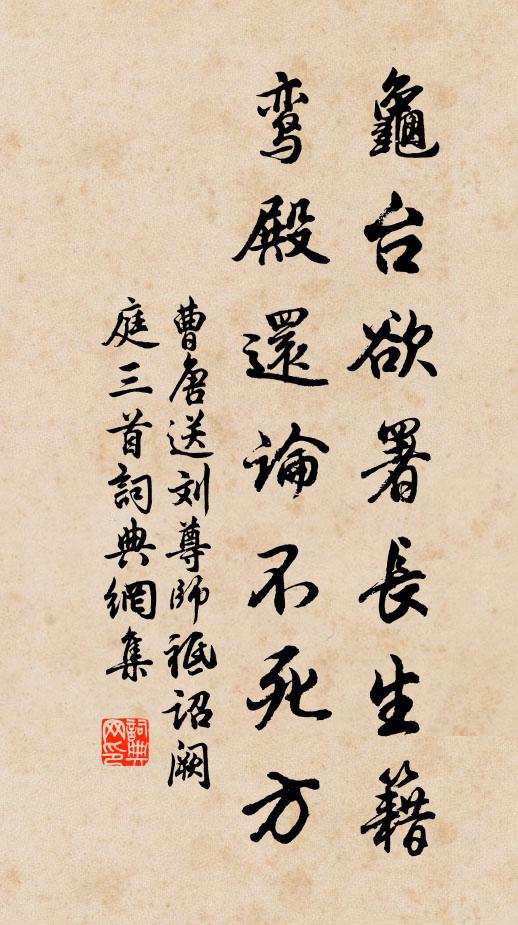 龜台欲署長生籍
鸾殿還論不死方
曹唐送刘尊師祗诏阙
庭三首詞典網集
詞典网印